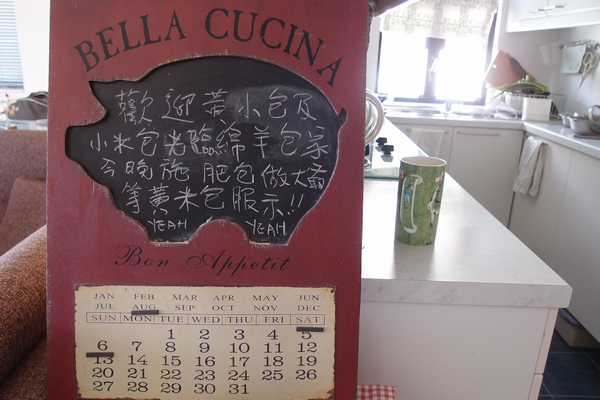 BELLA CUCINA
歡迎小包及
小米包光臨綿羊包家
今晚施肥包做大
等黃米包服示!!
YEAH YEAH
Bon Appetit
JAN FEB MAR APR MAY JUN
JUL AUG SEP OCT NOV DEC
SUN MON TUE WED THU FRI SAT
1 2 3 4 5
6 7 8 9 10 11 12
13 14 15 16 17 18 19
20 21 22 23 24 25 26
27 28 29 30 31